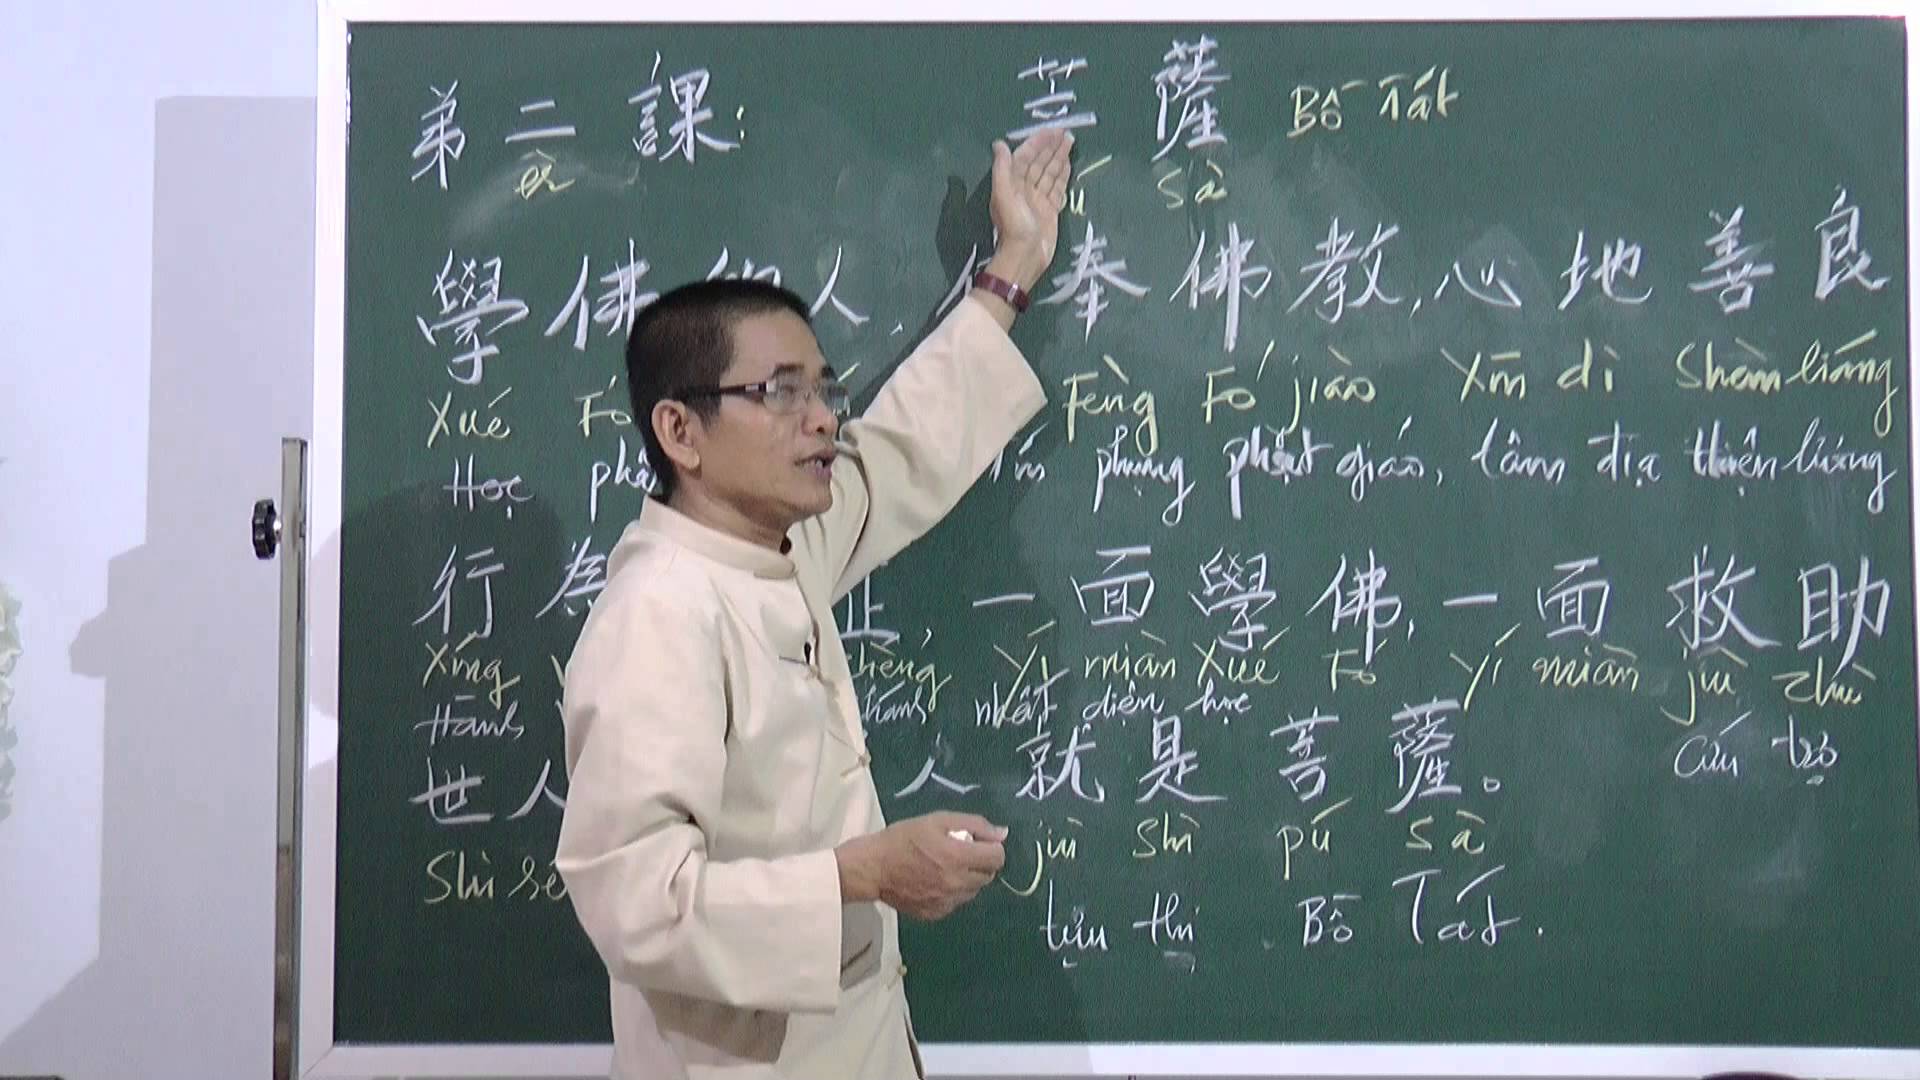 弟二課: 菩薩 Bồ Tát
èr sà
學佛 人, 奉佛教,心地善良
Xué Fó Fèng Fó jiào Xīn dì Shàn liáng
Học phụng phật giáo, tâm địa thiện lương
行 正,一面學佛,一面救助
Xíng Yí miàn Xué Fó Yí miàn jiù zhù
Hành nhất diện học Cứu trợ
世人 人就是菩薩。
Shì jiù Shì pú sà
tựu thị Bồ Tát.